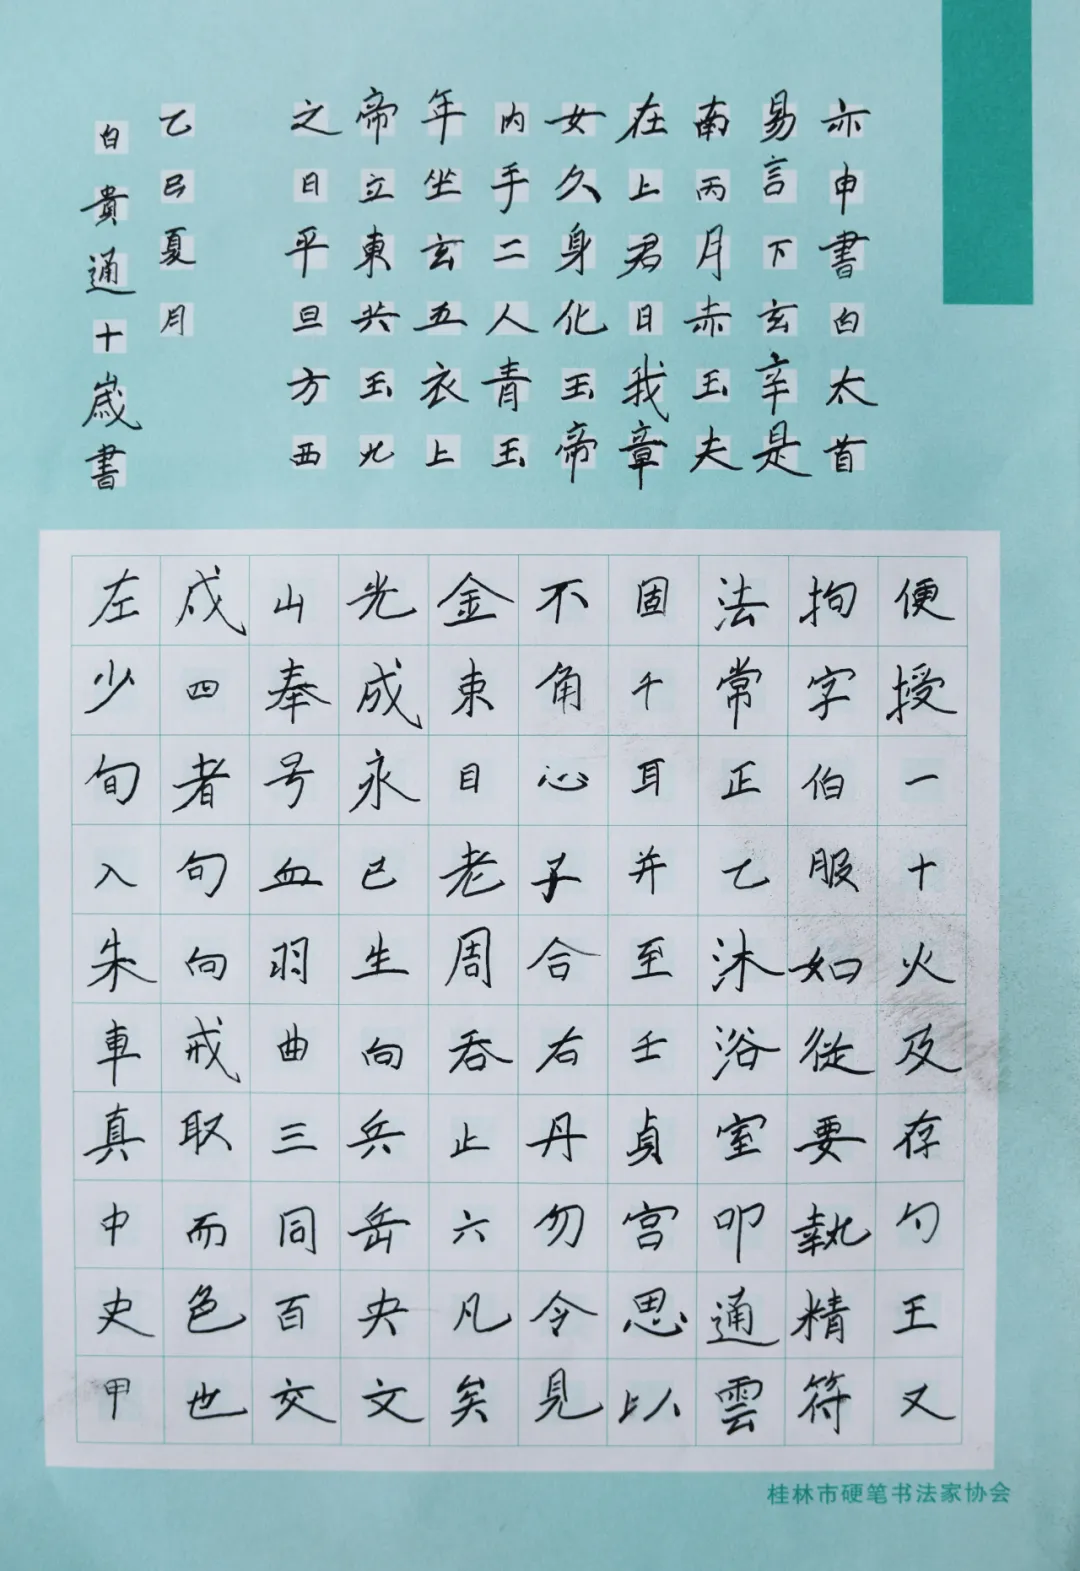 亦申書白太首
易言下玄辛是
南丙月赤玉夫
在上君日我章
女久身化玉帝
内手二人青玉
年坐玄五衣上
帝立東共玉北
之日平旦方西
乙巳夏月
白貴通十歲書
便授一十火及存勺王又
拘字伯服如從要執精符
法常正乙沐浴室叩通雲
固千耳并至壬貞宫思以
不角心子合右丹勿令見
金束目老周吞止六凡矣
光成永已生向兵岳央文
山奉号血羽曲三同百交
成四者句向戒取而色也
左少旬入朱車真中史甲
桂林市硬笔书法家协会